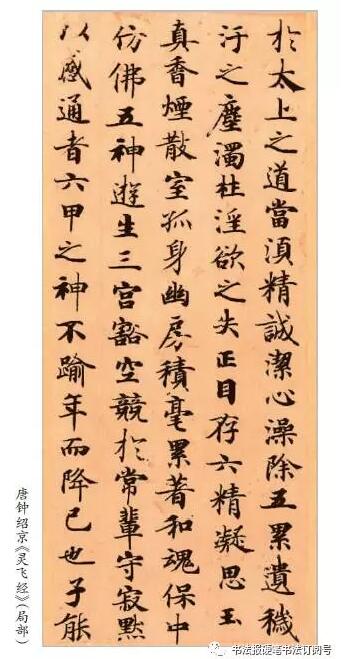 於太上之道當須精誠潔心澡除五累遺穢
汙之塵濁杜淫欲之失正目存六精凝思玉
真香煙散室孤身幽房積毫累著和魂保中
仿佛五神遊生三宮豁空競於常輩守寂默
以感通者六甲之神不踰年而降己也子能
唐钟绍京《灵飞经》(局部)
书法报硬笔书法订阅号